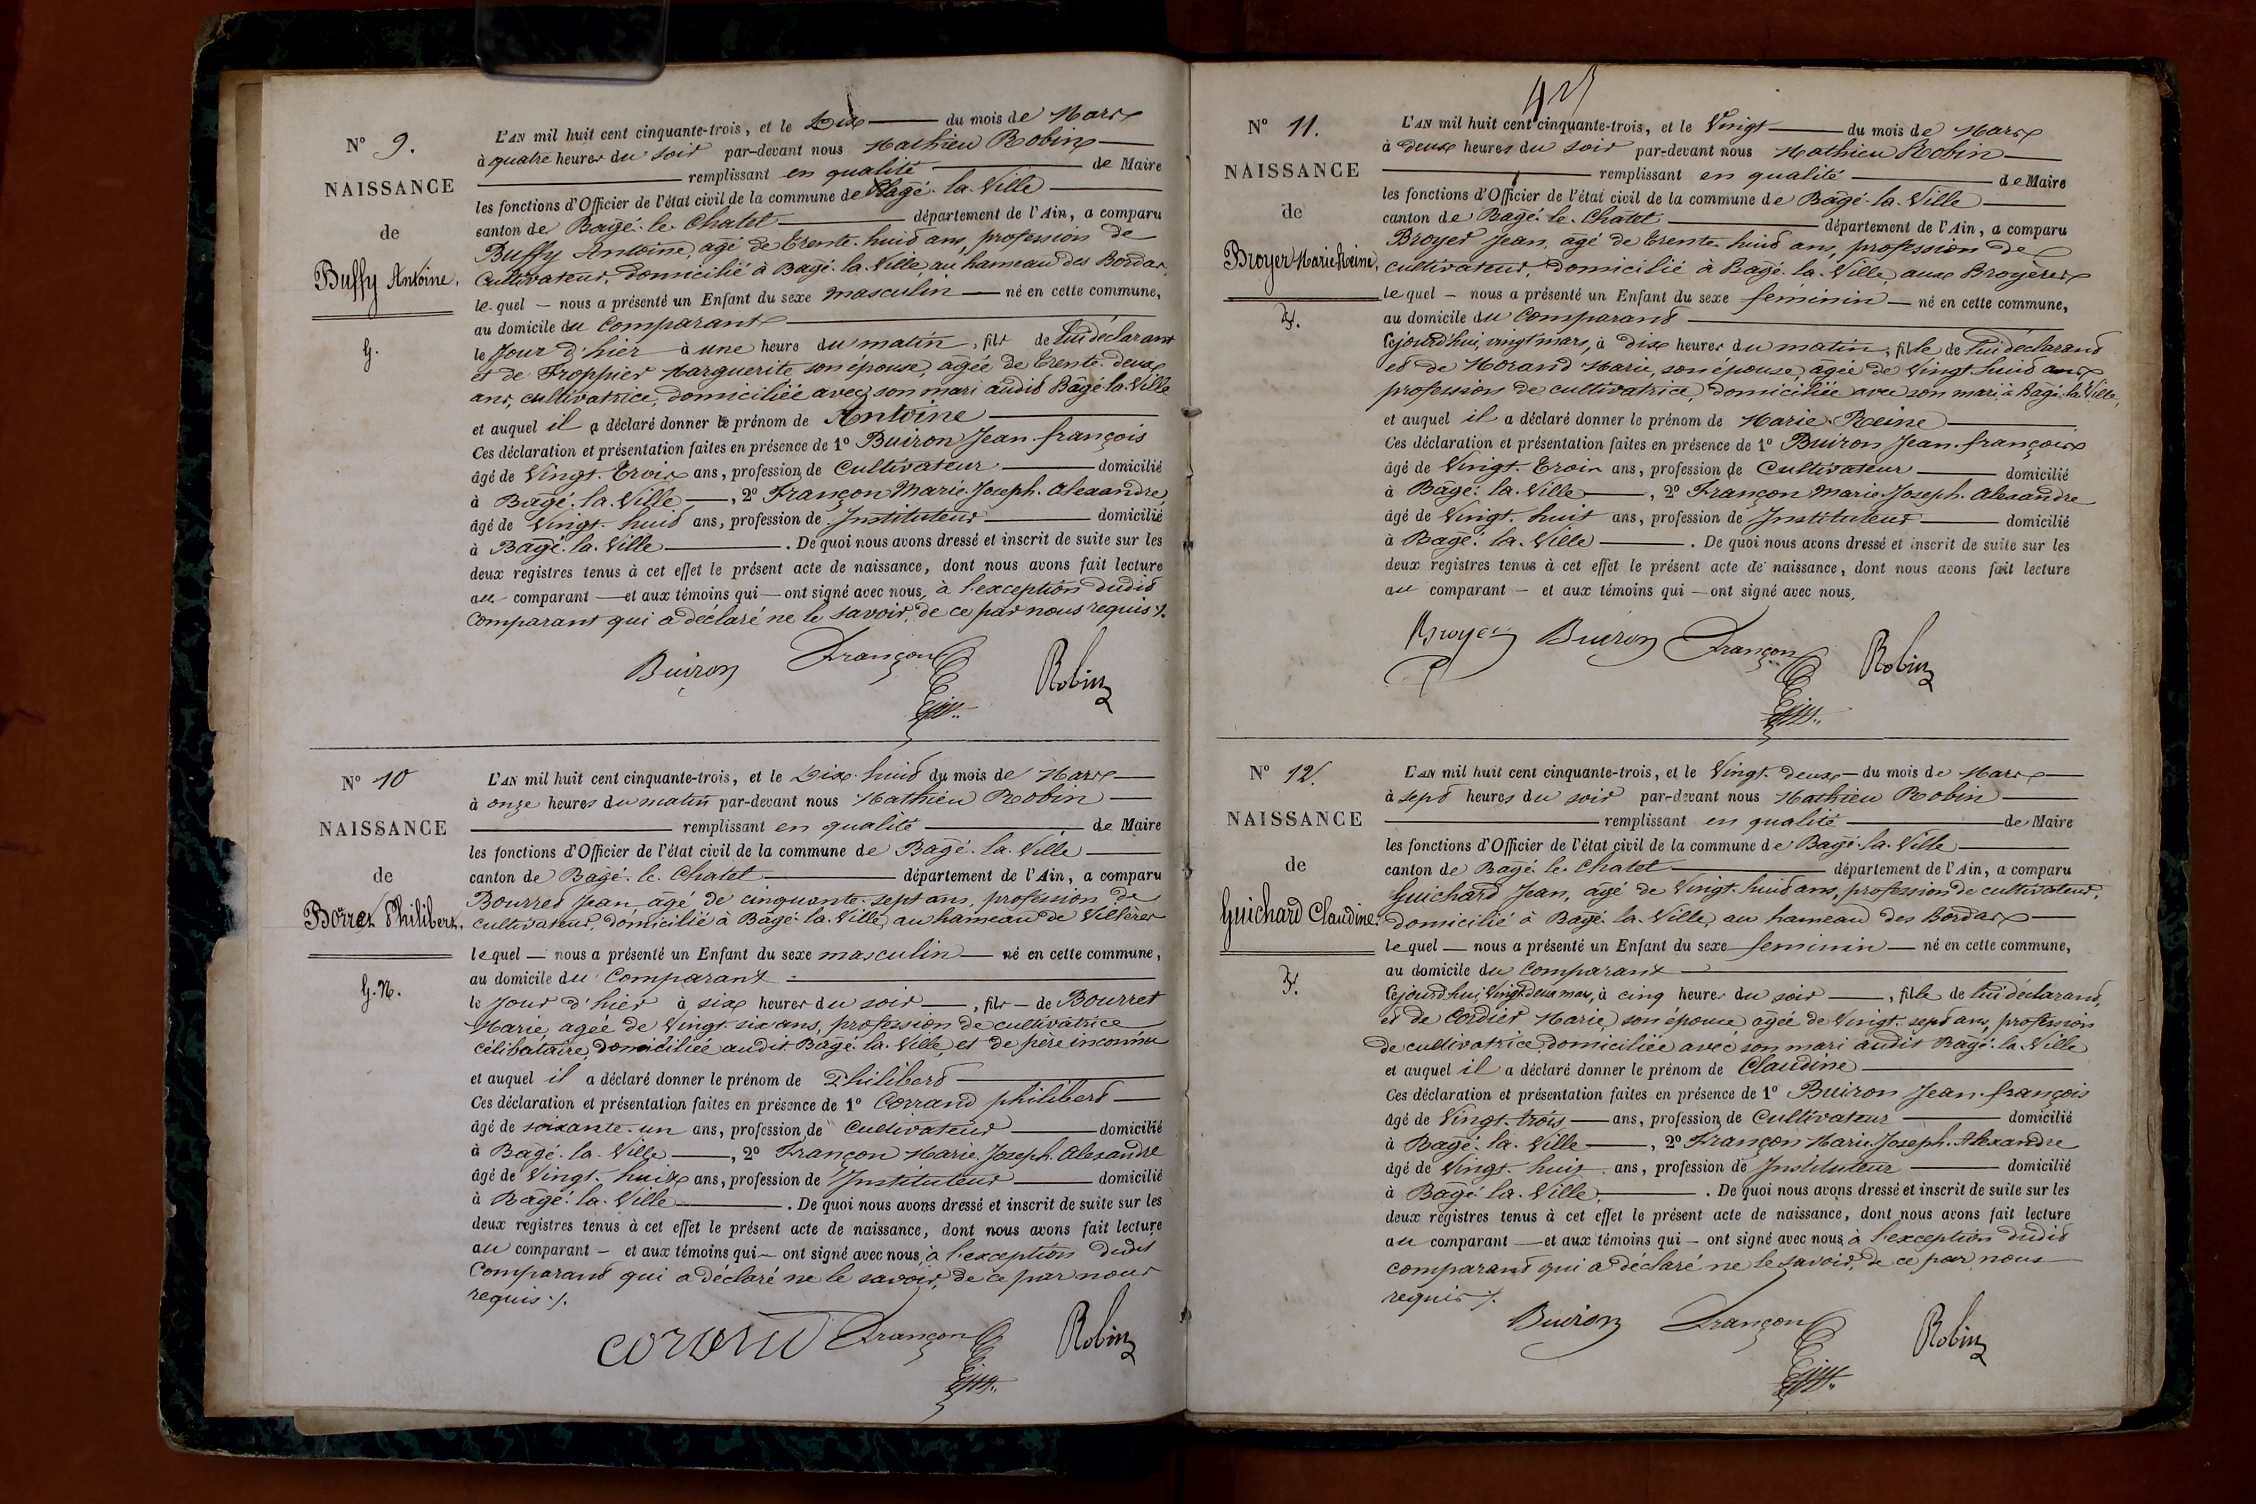 N° 9.
NAISSANCE
de
Buffy Antoine.
G.
L'AN mil huit cent cinquante-trois, et le Dix du mois de Mars
à quatre heures du soir par-devant nous Mathieu Robin
remplissant en qualité de Maire
les fonctions d'Officier de l'état civil de la commune de Bagé-la-Ville
canton de Bagé-le-Chatel département de l'Ain, a comparu
Buffy Antoine, agé de trente-huit ans, profession de
Cultivateur, domicilié à Bagé-la-Ville, au hameau des Bordas,
lequel — nous a présenté un Enfant du sexe masculin — né en cette commune,
au domicile du Comparant
le Jour d'hier à une heure du matin, fils de lui déclarant
et de Froppier Marguerite son épouse, agée de trente-deux
ans, cultivatrice, domiciliée avec son mari audit Bagé-la-Ville
et auquel il a déclaré donner le prénom de Antoine
Ces déclaration et présentation faites en présence de 1° Buiron Jean-françois
âgé de Vingt-trois ans, profession de Cultivateur domicilié
à Bagé-la-Ville —, 2° Françon Marie-Joseph-Alexandre
âgé de Vingt-huit ans, profession de Instituteur domicilié
à Bagé-la-Ville . De quoi nous avons dressé et inscrit de suite sur les
deux registres tenus à cet effet le présent acte de naissance, dont nous avons fait lecture
au comparant — et aux témoins qui — ont signé avec nous, à l'exception dudit
Comparant qui a déclaré ne le savoir, de ce par nous requis ./.
Buiron Françon Robin
N° 10
NAISSANCE
de
Borret Philibert.
G. N.
L'AN mil huit cent cinquante-trois, et le Dix-huit du mois de Mars
à onze heures du matin par-devant nous Mathieu Robin
remplissant en qualité de Maire
les fonctions d'Officier de l'état civil de la commune de Bagé-la-Ville
canton de Bagé-le-Chatel département de l'Ain, a comparu
Bourret Jean, agé de cinquante-sept ans, profession de
cultivateur, domicilié à Bagé-la-Ville, au hameau de
lequel — nous a présenté un Enfant du sexe masculin — né en cette commune,
au domicile du Comparant
le Jour d'hier à six heures du soir —, fils — de Bourret
Marie agée de Vingt-six ans, profession de cultivatrice
célibataire, domiciliée audit Bagé-la-Ville, et de père inconnu
et auquel il a déclaré donner le prénom de Philibert
Ces déclaration et présentation faites en présence de 1° Corrand philibert
âgé de soixante-un ans, profession de Cultivateur domicilié
à Bagé-la-Ville —, 2° Françon Marie-Joseph-Alexandre
âgé de Vingt-huit ans, profession de Instituteur domicilié
à Bagé-la-Ville . De quoi nous avons dressé et inscrit de suite sur les
deux registres tenus à cet effet le présent acte de naissance, dont nous avons fait lecture
au comparant — et aux témoins qui — ont signé avec nous, à l'exception dudit
Comparant qui a déclaré ne le savoir, de ce par nous
requis ./.
Françon Robin
N° 11.
NAISSANCE
de
Broyer Marie Reine.
F.
L'AN mil huit cent cinquante-trois, et le Vingt du mois de Mars
à deux heures du soir par-devant nous Mathieu Robin
remplissant en qualité de Maire
les fonctions d'Officier de l'état civil de la commune de Bagé-la-Ville
canton de Bagé-le-Chatel département de l'Ain, a comparu
Broyer Jean, agé de trente-huit ans, profession de
cultivateur, domicilié à Bagé-la-Ville, aux Broyères
lequel — nous a présenté un Enfant du sexe féminin — né en cette commune,
au domicile du Comparant
Cejourd'hui, vingt mars, à dix heures du matin, fille de lui déclarant
et de Morand Marie, son épouse, agée de Vingt-huit ans
profession de cultivatrice, domiciliée avec son mari à Bagé-la-Ville,
et auquel il a déclaré donner le prénom de Marie-Reine
Ces déclaration et présentation faites en présence de 1° Buiron Jean-françois
âgé de Vingt-trois ans, profession de Cultivateur domicilié
à Bagé-la-Ville —, 2° Françon Marie-Joseph-Alexandre
âgé de Vingt-huit ans, profession de Instituteur domicilié
à Bagé-la-Ville . De quoi nous avons dressé et inscrit de suite sur les
deux registres tenus à cet effet le présent acte de naissance, dont nous avons fait lecture
au comparant — et aux témoins qui — ont signé avec nous.
Broyer Buiron Françon Robin
N° 12.
NAISSANCE
de
Guichard Claudine.
F.
L'AN mil huit cent cinquante-trois, et le Vingt-deux — du mois de Mars
à sept heures du soir par-devant nous Mathieu Robin
remplissant en qualité de Maire
les fonctions d'Officier de l'état civil de la commune de Bagé-la-Ville
canton de Bagé-le-Chatel département de l'Ain, a comparu
Guichard Jean, agé de Vingt-huit ans, profession de cultivateur,
domicilié à Bagé-la-Ville, au hameau des Bordas
lequel — nous a présenté un Enfant du sexe féminin — né en cette commune,
au domicile du Comparant
Cejourd'hui, Vingt deux mars, à cinq heures du soir —, fille de lui déclarant,
et de Cordier Marie, son épouse agée de Vingt-sept ans, profession
de cultivatrice domiciliée avec son mari audit Bagé-la-Ville
et auquel il a déclaré donner le prénom de Claudine
Ces déclaration et présentation faites en présence de 1° Buiron Jean-françois
âgé de Vingt-trois — ans, profession de Cultivateur domicilié
à Bagé-la-Ville —, 2° Françon Marie-Joseph-Alexandre
âgé de Vingt-huit ans, profession de Instituteur domicilié
à Bagé-la-Ville . De quoi nous avons dressé et inscrit de suite sur les
deux registres tenus à cet effet le présent acte de naissance, dont nous avons fait lecture
au comparant — et aux témoins qui — ont signé avec nous à l'exception dudit
comparant qui a déclaré ne le savoir, de ce par nous
requis ./.
Buiron Françon Robin